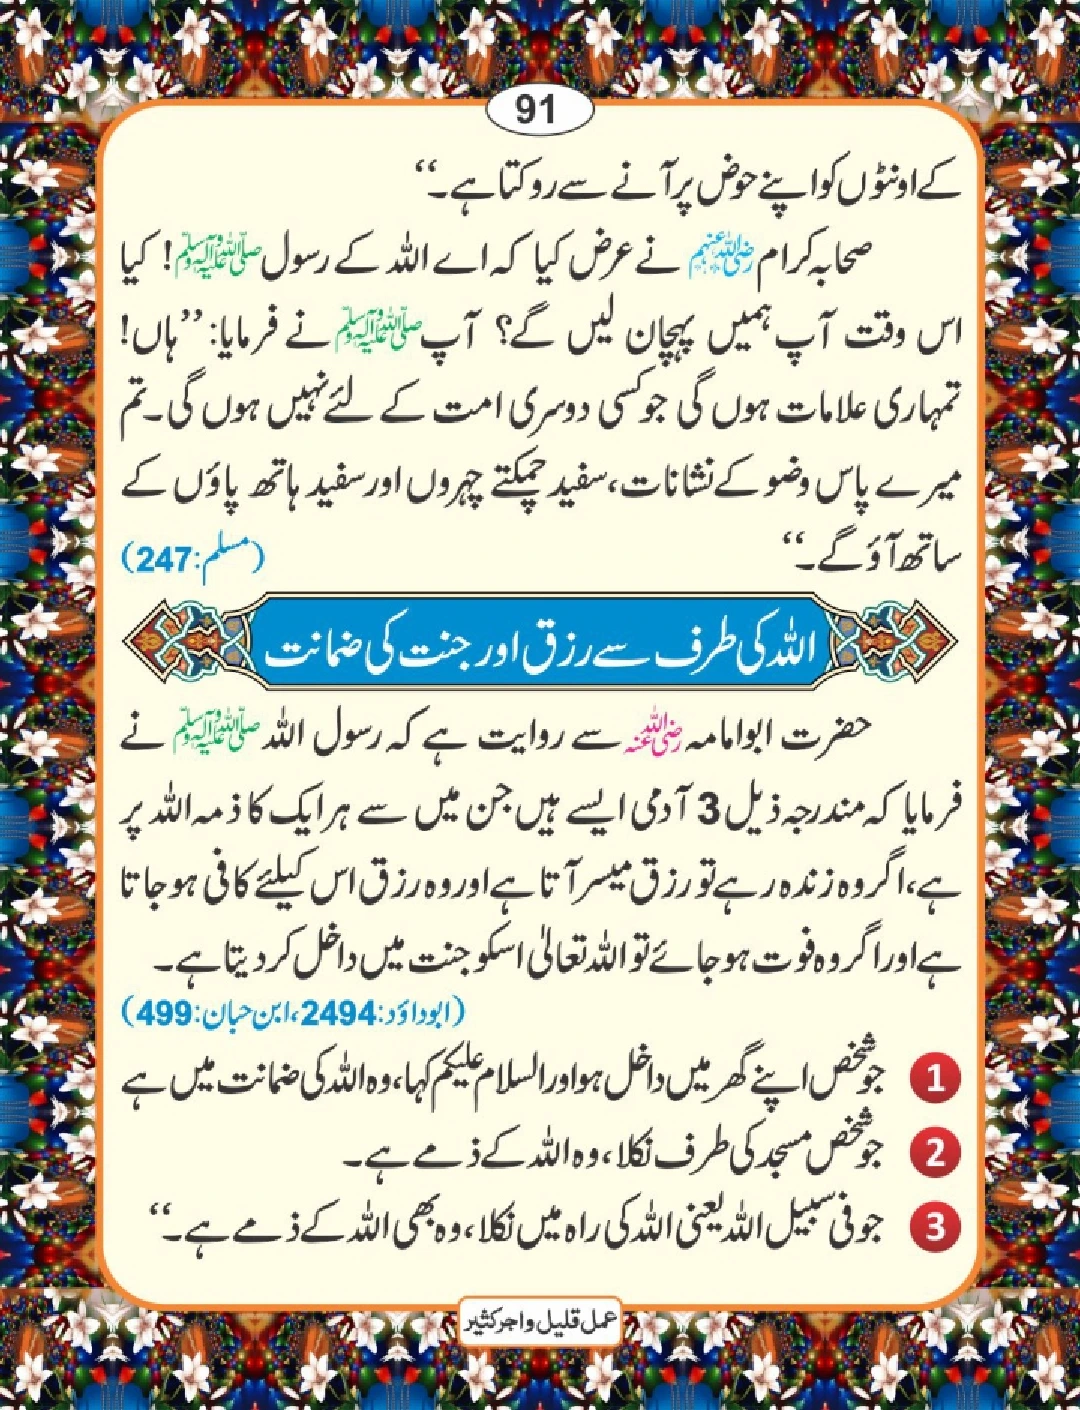 91
کے اونٹوں کو اپنے حوض پر آنے سے روکتا ہے۔‘‘
صحابہ کرام رضی اللہ عنہم نے عرض کیا کہ اے اللہ کے رسول صلی اللہ علیہ وآلہ وسلم! کیا
اس وقت آپ ہمیں پہچان لیں گے؟ آپ صلی اللہ علیہ وآلہ وسلم نے فرمایا: ’’ہاں!
تمہاری علامات ہوں گی جو کسی دوسری امت کے لئے نہیں ہوں گی۔ تم
میرے پاس وضو کے نشانات، سفید چمکتے چہروں اور سفید ہاتھ پاؤں کے
ساتھ آؤ گے۔‘‘ (مسلم: 247)
اللہ کی طرف سے رزق اور جنت کی ضمانت
حضرت ابوامامہ رضی اللہ عنہ سے روایت ہے کہ رسول اللہ صلی اللہ علیہ وآلہ وسلم نے
فرمایا کہ مندرجہ ذیل 3 آدمی ایسے ہیں جن میں سے ہر ایک کا ذمہ اللہ پر
ہے، اگر وہ زندہ رہے تو رزق میسر آتا ہے اور وہ رزق اس کیلئے کافی ہو جاتا
ہے اور اگر وہ فوت ہو جائے تو اللہ تعالیٰ اسکو جنت میں داخل کر دیتا ہے۔
(ابوداؤد: 2494، ابن حبان: 499)
1 جو شخص اپنے گھر میں داخل ہو اور السلام علیکم کہا، وہ اللہ کی ضمانت میں ہے
2 جو شخص مسجد کی طرف نکلا، وہ اللہ کے ذمے ہے۔
3 جو فی سبیل اللہ یعنی اللہ کی راہ میں نکلا، وہ بھی اللہ کے ذمے ہے۔‘‘
عمل قلیل و اجر کثیر